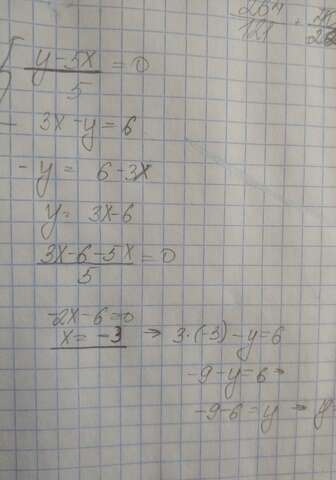 { y-5x/5 = 0
3x-y=6
-y = 6-3x
y = 3x-6
3x-6-5x/5 = 0
-2x-6=0
x = -3 ⇒ 3·(-3)-y=6
-9-y=6 ⇒
-9-6=y ⇒ y